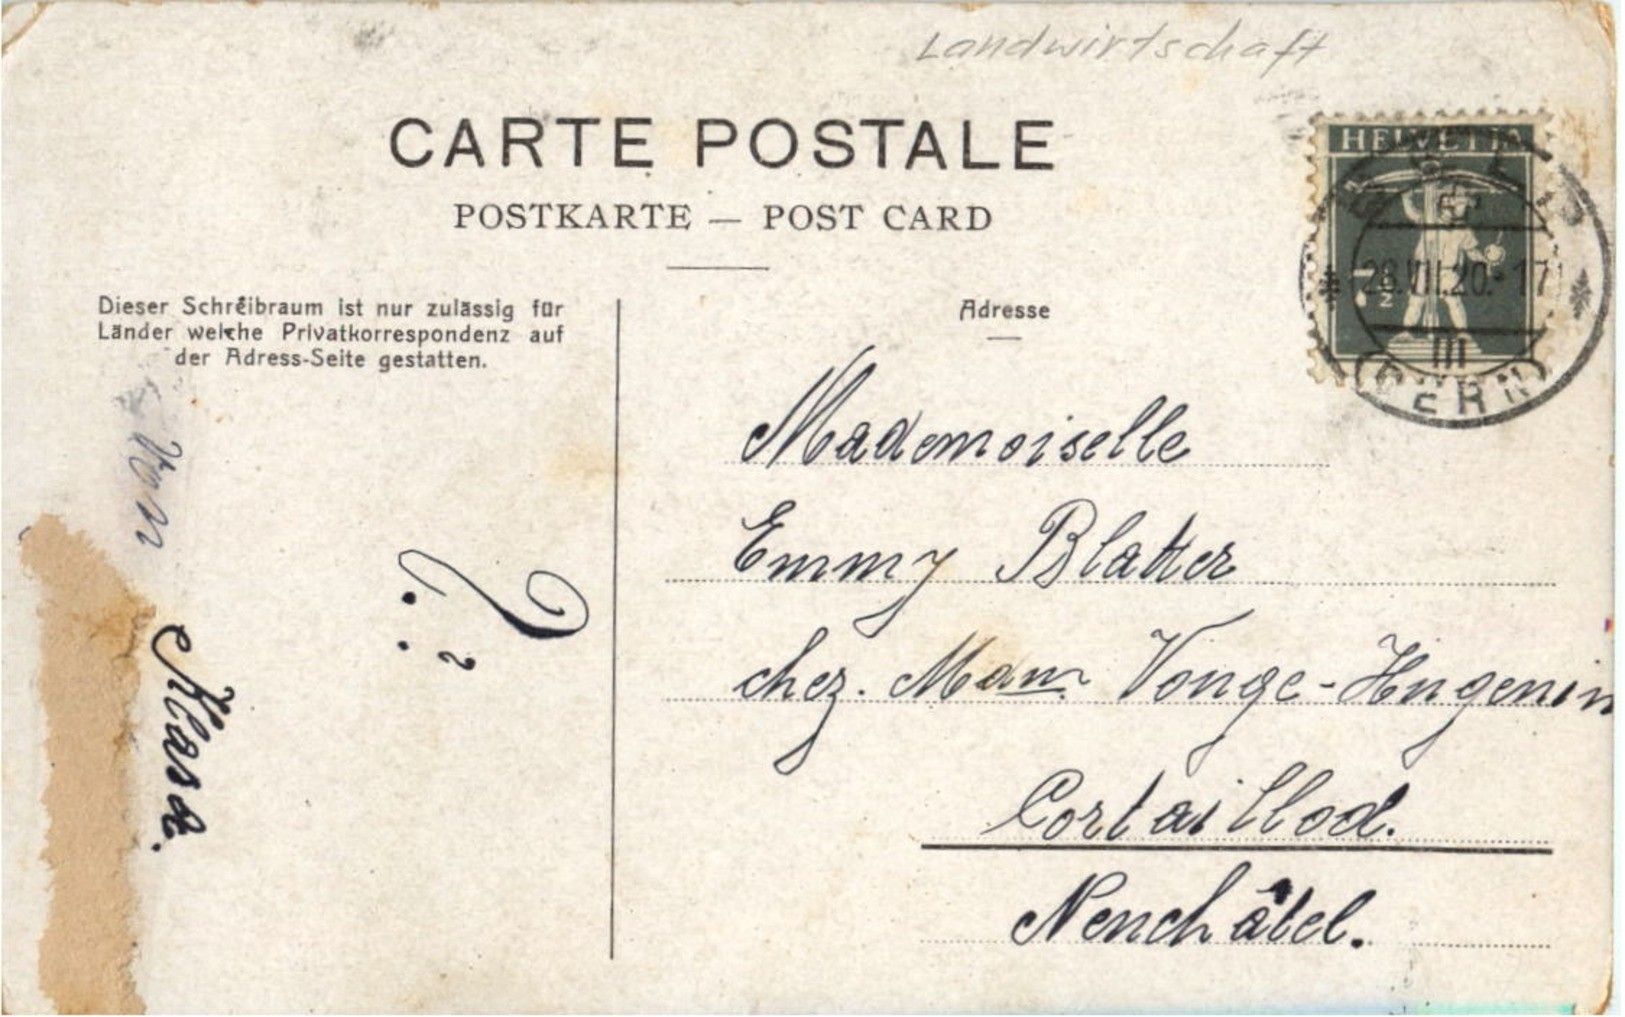 Landwirtschaft
CARTE POSTALE
POSTKARTE — POST CARD
Dieser Schreibraum ist nur zulässig für
Länder welche Privatkorrespondenz auf
der Adress-Seite gestatten.
Adresse
HELVETIA
7 1/2
28.VII.20.-17
III
(BERN)
Von
Klara.
?
Mademoiselle
Emmy Blatter
chez. Mam. Vonge-Hugenin
Cortaillod.
Neuchâtel.